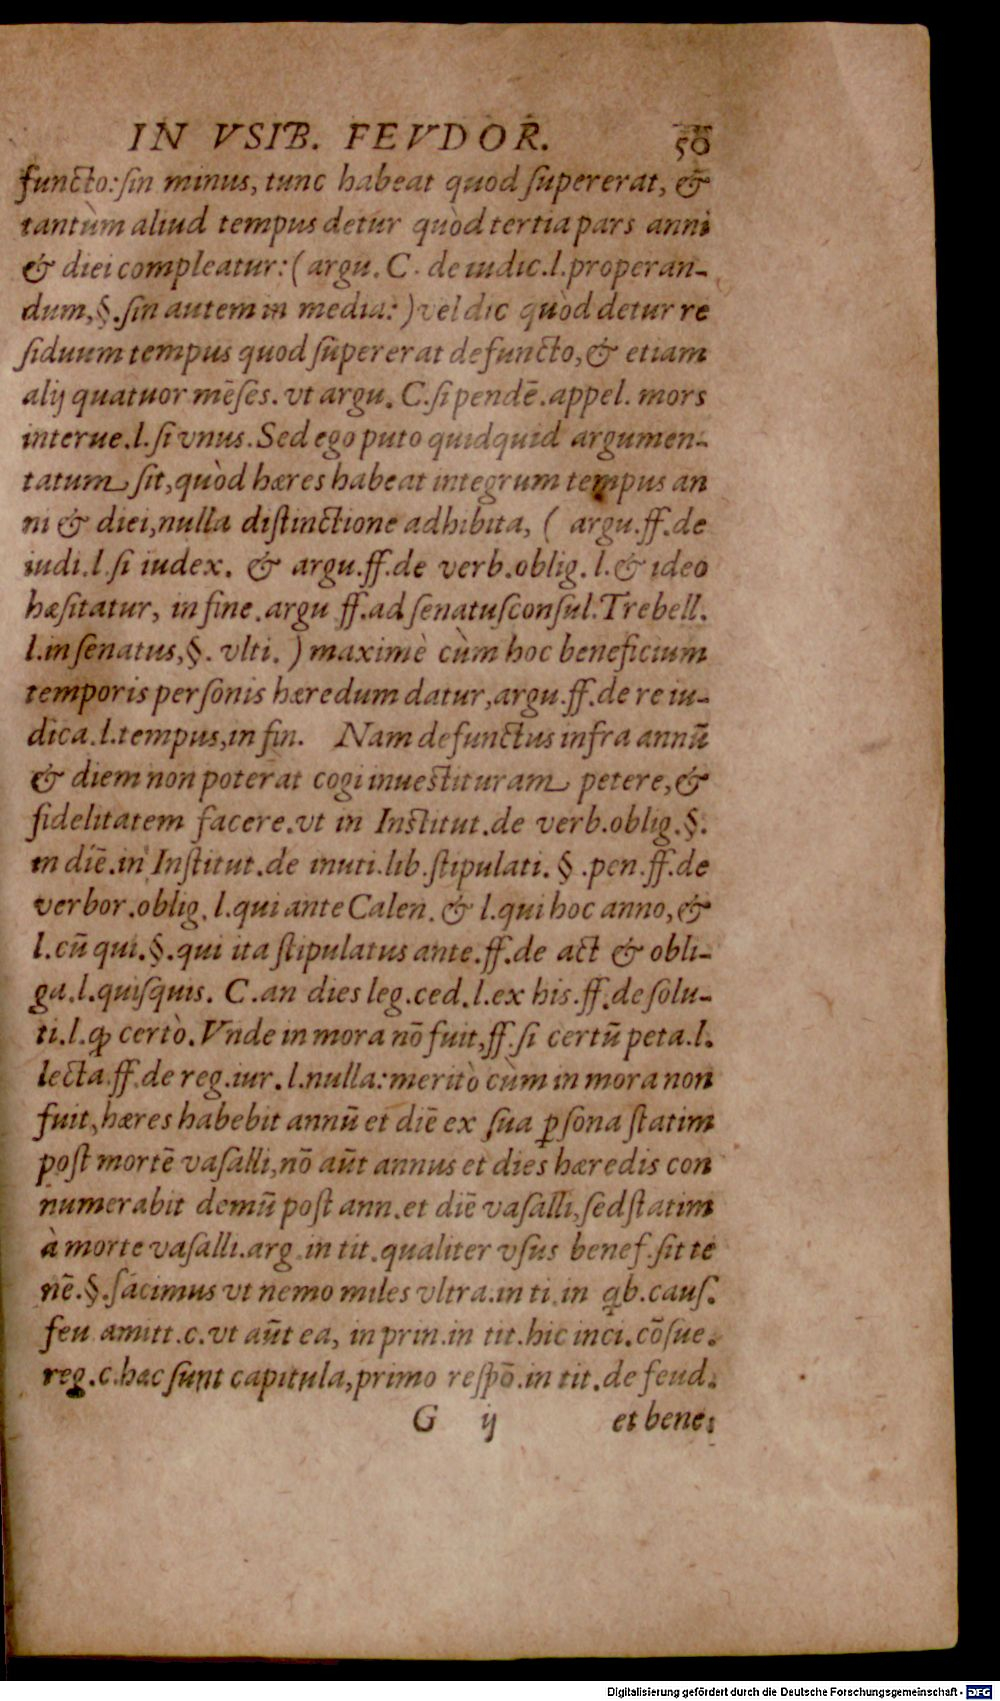 IN VSIB. FEVDOR. 50
functo: sin minus, tunc habeat quod supererat, &
tantùm aliud tempus detur quòd tertia pars anni
& diei compleatur: (argu. C. de iudic. l. properan-
dum, §. sin autem in media: ) vel dic quòd detur re
siduum tempus quod supererat defuncto, & etiam
alij quatuor mēses. vt argu. C. si pendē. appel. mors
interue. l. si vnus. Sed ego puto quidquid argumen-
tatum sit, quòd hæres habeat integrum tempus an
ni & diei, nulla distinctione adhibita, ( argu. ff. de
iudi. l. si iudex. & argu. ff. de verb. oblig. l. & ideo
hæsitatur, in fine. argu ff. ad senatusconsul. Trebell.
l. in senatus, §. vlti. ) maximè cùm hoc beneficium
temporis personis hæredum datur, argu. ff. de re iu-
dica. l. tempus, in fin. Nam defunctus infra annū
& diem non poterat cogi inuestituram petere, &
fidelitatem facere. vt in Institut. de verb. oblig. §.
in diē. in Institut. de inuti. lib. stipulati. §. pen. ff. de
verbor. oblig. l. qui ante Calen. & l. qui hoc anno, &
l. cū qui. §. qui ita stipulatus ante. ff. de act & obli-
ga. l. quisquis. C. an dies leg. ced. l. ex his. ff. de solu-
ti. l. ꝙ certò. Vnde in mora nō fuit, ff. si certū peta. l.
lecta. ff. de reg. iur. l. nulla: meritò cùm in mora non
fuit, hæres habebit annū et diē ex sua ꝑsona statim
post mortē vasalli, nō aūt annus et dies hæredis con
numerabit demū post ann. et diē vasalli, sed statim
à morte vasalli. arg. in tit. qualiter vsus benef. sit te
nē. §. sácimus vt nemo miles vltra. in ti. in qb. caus.
feu amitt. c. vt aūt ea, in prin. in tit. hic inci. cōsue.
reg. c. hac sunt capitula, primo respō. in tit. de feud.
G ij et bene:
Digitalisierung gefördert durch die Deutsche Forschungsgemeinschaft - DFG